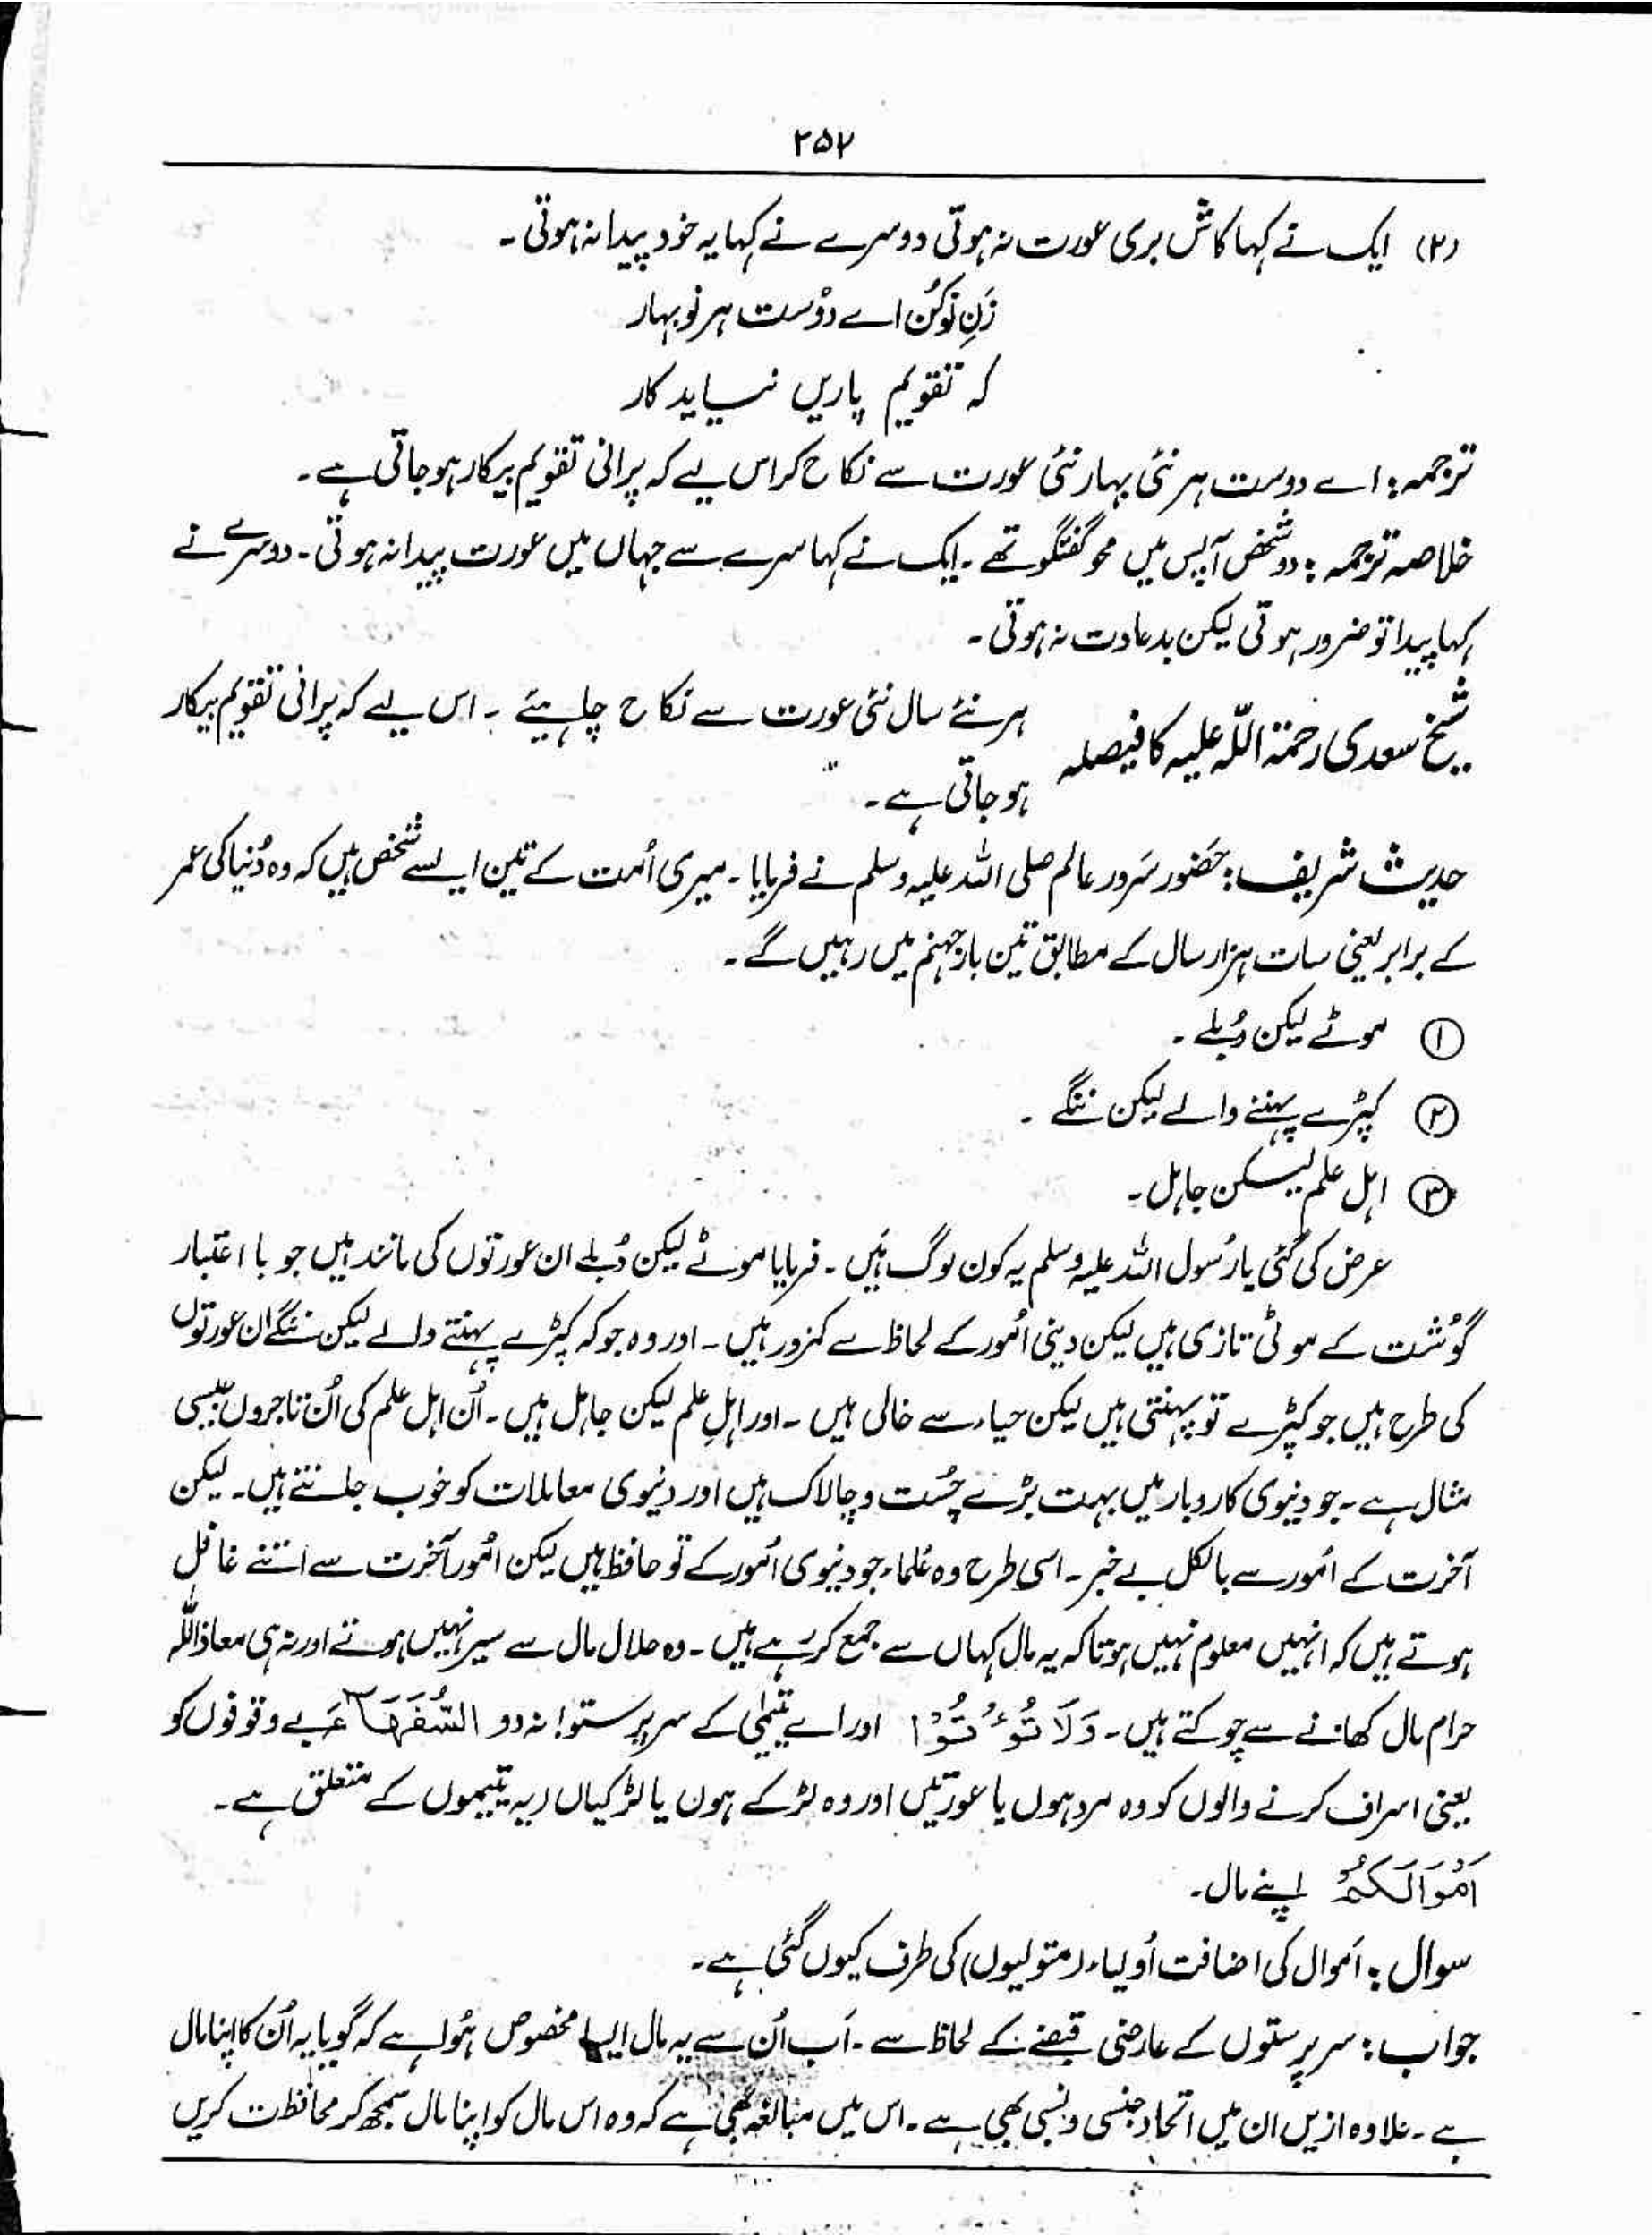 ۲۵۲
(۲) ایک نے کہا کاش بری عورت نہ ہوتی دوسرے نے کہا یہ خود پیدا نہ ہوتی ۔
زَنِ نَوکُن اے دوست ہر نو بہار
کہ تقویم پاریں نیاید کار
ترجمہ : اے دوست ہر نئی بہار نئی عورت سے نکاح کر اس لیے کہ پرانی تقویم بیکار ہو جاتی ہے ۔
خلاصہ ترجمہ : دو شخص آپس میں محو گفتگو تھے ۔ ایک نے کہا سرے سے جہاں میں عورت پیدا نہ ہوتی ۔ دوسرے نے
کہا پیدا تو ضرور ہوتی لیکن بدعادت نہ ہوتی ۔
شیخ سعدی رحمۃ اللہ علیہ کا فیصلہ
ہر نئے سال نئی عورت سے نکاح چاہیئے ۔ اس لیے کہ پرانی تقویم بیکار
ہو جاتی ہے ۔
حدیث شریف : حضور سَرور عالم صلی اللہ علیہ وسلم نے فرمایا ۔ میری اُمت کے تین ایسے شخص ہیں کہ وہ دُنیا کی عمر
کے برابر یعنی سات ہزار سال کے مطابق تین بار جہنم میں رہیں گے ۔
① موٹے لیکن دُبلے ۔
② کپڑے پہننے والے لیکن ننگے ۔
③ اہل علم لیکن جاہل ۔
عرض کی گئی یا رُسول اللہ علیہ وسلم یہ کون لوگ ہیں ۔ فرمایا موٹے لیکن دُبلے ان عورتوں کی مانند ہیں جو با اعتبار
گوشت کے موٹی تازی ہیں لیکن دینی اُمور کے لحاظ سے کمزور ہیں ۔ اور وہ جو کہ کپڑے پہننے والے لیکن ننگے ان عورتوں
کی طرح ہیں جو کپڑے تو پہنتی ہیں لیکن حیاء سے خالی ہیں ۔ اور اہلِ علم لیکن جاہل ہیں ۔ اُن اہل علم کی اُن تاجروں جیسی
مثال ہے ۔ جو دنیوی کاروبار میں بہت بڑے چُست و چالاک ہیں اور دنیوی معاملات کو خوب جانتے ہیں ۔ لیکن
آخرت کے اُمور سے بالکل بے خبر ۔ اسی طرح وہ عُلماء جو دنیوی اُمور کے تو حافظ ہیں لیکن اُمورِ آخرت سے اتنے غافل
ہوتے ہیں کہ انہیں معلوم نہیں ہوتا کہ یہ مال کہاں سے جمع کر رہے ہیں ۔ وہ حلال مال سے سیر نہیں ہوتے اور نہ ہی معاذ اللہ
حرام مال کھانے سے چوکتے ہیں ۔ وَلَا تُؤْتُوْا اور اے یتیمٰی کے سرپرستو! نہ دو السُّفَهَآءَ بے وقوفوں کو
یعنی اسراف کرنے والوں کو وہ مرد ہوں یا عورتیں اور وہ لڑکے ہوں یا لڑکیاں (یہ یتیموں کے متعلق ہے ۔
اَمْوَالَكُمُ اپنے مال ۔
سوال : اَموال کی اضافت اَولیاء (متولیوں) کی طرف کیوں گئی ہے ۔
جواب : سرپرستوں کے عارضی قبضے کے لحاظ سے ۔ اَب اُن سے یہ مال ایسا مخصوص ہُوا ہے کہ گویا یہ اُن کا اپنا مال
ہے ۔ علاوہ ازیں ان میں اتحاد جنسی و نسبی بھی ہے ۔ اس میں مبالغہ بھی ہے کہ وہ اس مال کو اپنا مال سمجھ کر محافظت کریں